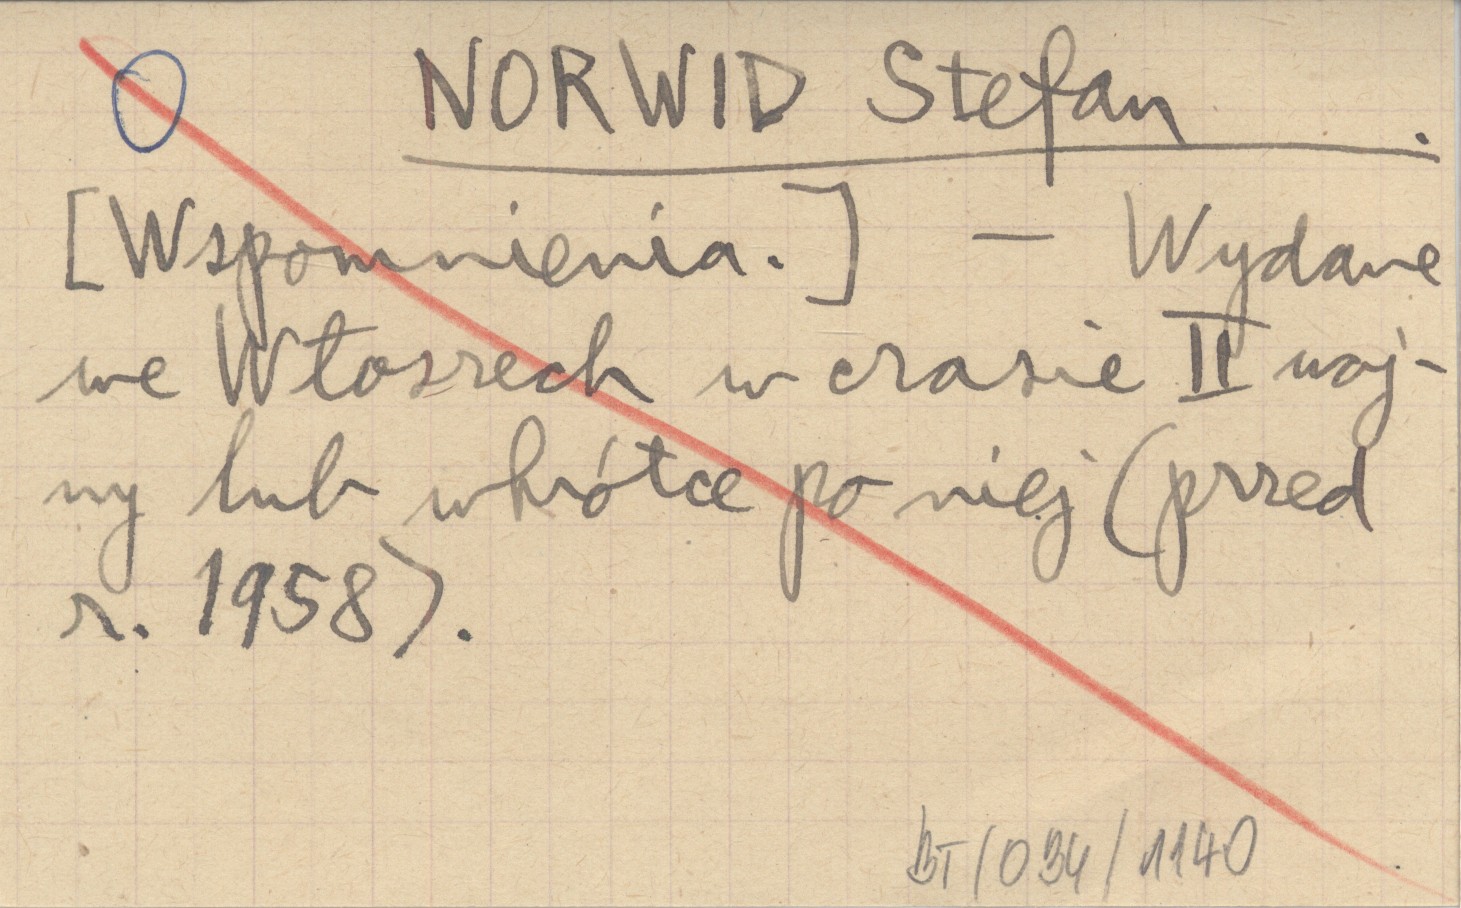 NORWID Stefan.
[Wspomnienia.] — Wydane
we Włoszech w czasie II woj-
ny lub wkrótce po niej (przed
r. 1958).
BT/034/1140